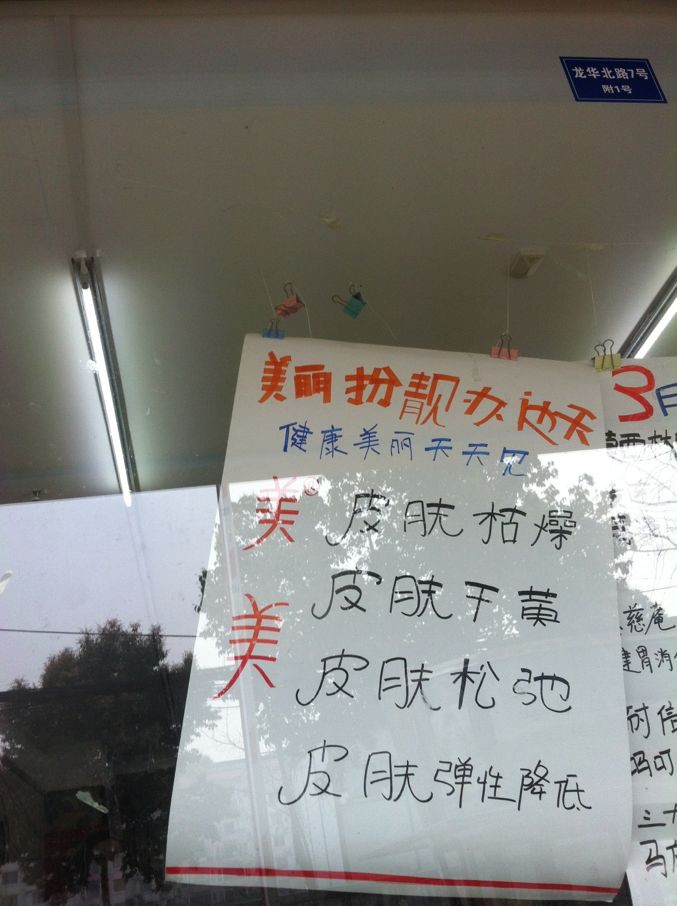 龙华北路7号
附1号
美丽扮靓
健康美丽天天见
美 皮肤枯燥
皮肤干黄
美 皮肤松弛
皮肤弹性降低
3月
慈庵
健胃消
耐信
吗叮
三九